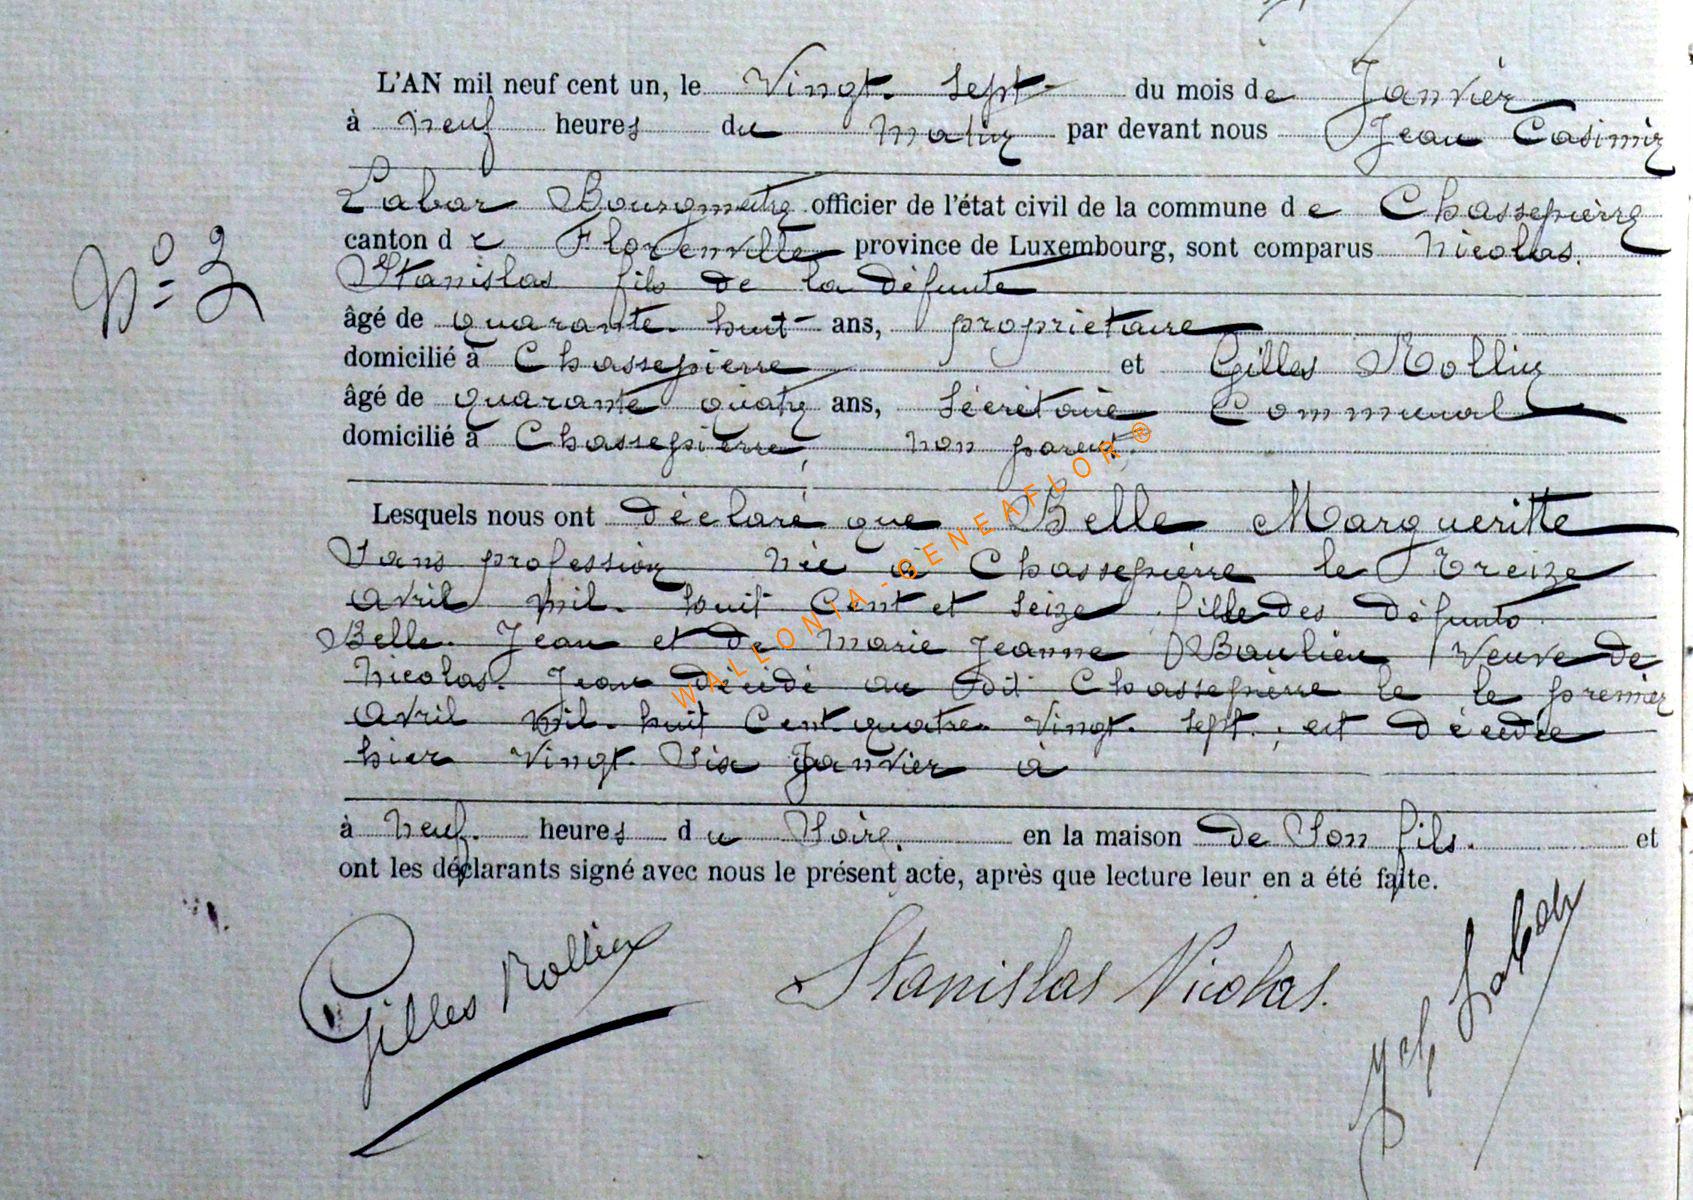 L'AN mil neuf cent un, le Vingt. Sept du mois de Janvier
à neuf heures du matin par devant nous Jean Casimir
Labar Bourgmestre officier de l'état civil de la commune de Chassepierre
canton de Florenville province de Luxembourg, sont comparus Nicolas.
Stanislas fils de la défunte
âgé de quarante. huit ans, propriétaire
domicilié à Chassepierre et Gilles Rollin
âgé de quarante quatre ans, Sécrétaire Communal
domicilié à Chassepierre, non parent.
Lesquels nous ont déclaré que Belle Margueritte
Sans profession née à Chassepierre le Treize
Avril mil. huit Cent et seize fille des défunts
Belle. Jean et de Marie Jeanne Baulieu Veuve de
Nicolas. Jean décidé au dit Chassepierre le le premier
Avril mil. huit Cent quatre. Vingt. Sept. ; est décédée
hier Vingt Six Janvier à
à Neuf. heures du Soire. en la maison de Son fils. et
ont les déclarants signé avec nous le présent acte, après que lecture leur en a été faite.
N° = 2
Gilles Rollin
Stanislas Nicolas.
Labar
WALLONIA - GENEAFLOR ®